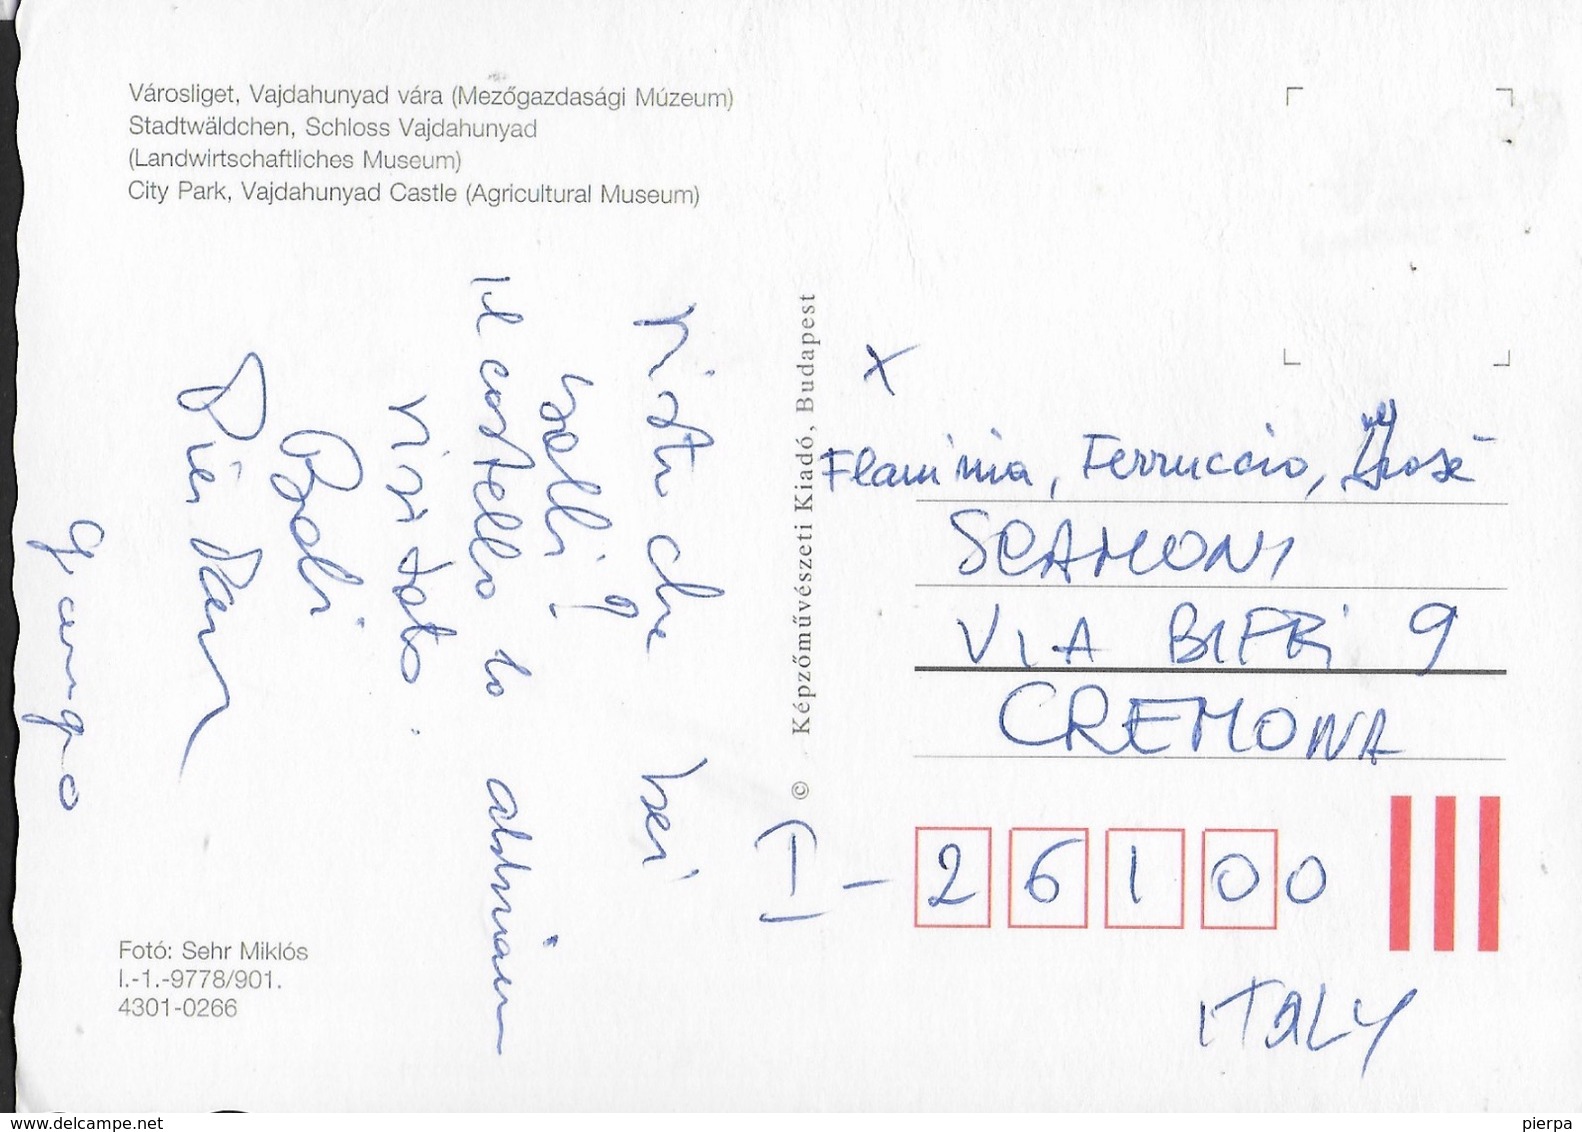 Városliget, Vajdahunyad vára (Mezőgazdasági Múzeum)
Stadtwäldchen, Schloss Vajdahunyad
(Landwirtschaftliches Museum)
City Park, Vajdahunyad Castle (Agricultural Museum)
Visto che bei
bolli?
Il castello lo abbiam
visitato.
Képzőművészeti Kiadó, Budapest ©
X
Flaminia, Ferruccio,
SCAMONI
VIA BIFFI 9
CREMONA
I - 26100
ITALY
Fotó: Sehr Miklós
I.-1.-9778/901.
4301-0266
www.delcampe.net
pierpa